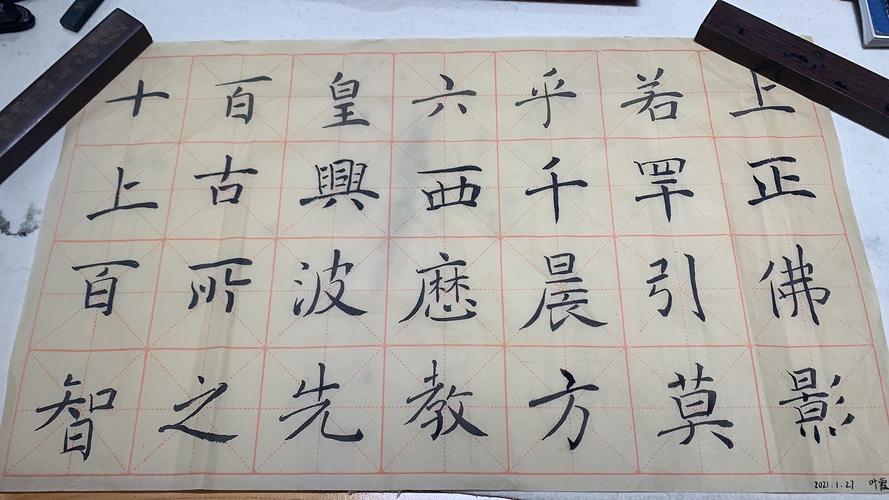 十百皇六乎若上
上古興西千罕正
百所波晨引佛
智之先教方莫影
2021.1.27 叶